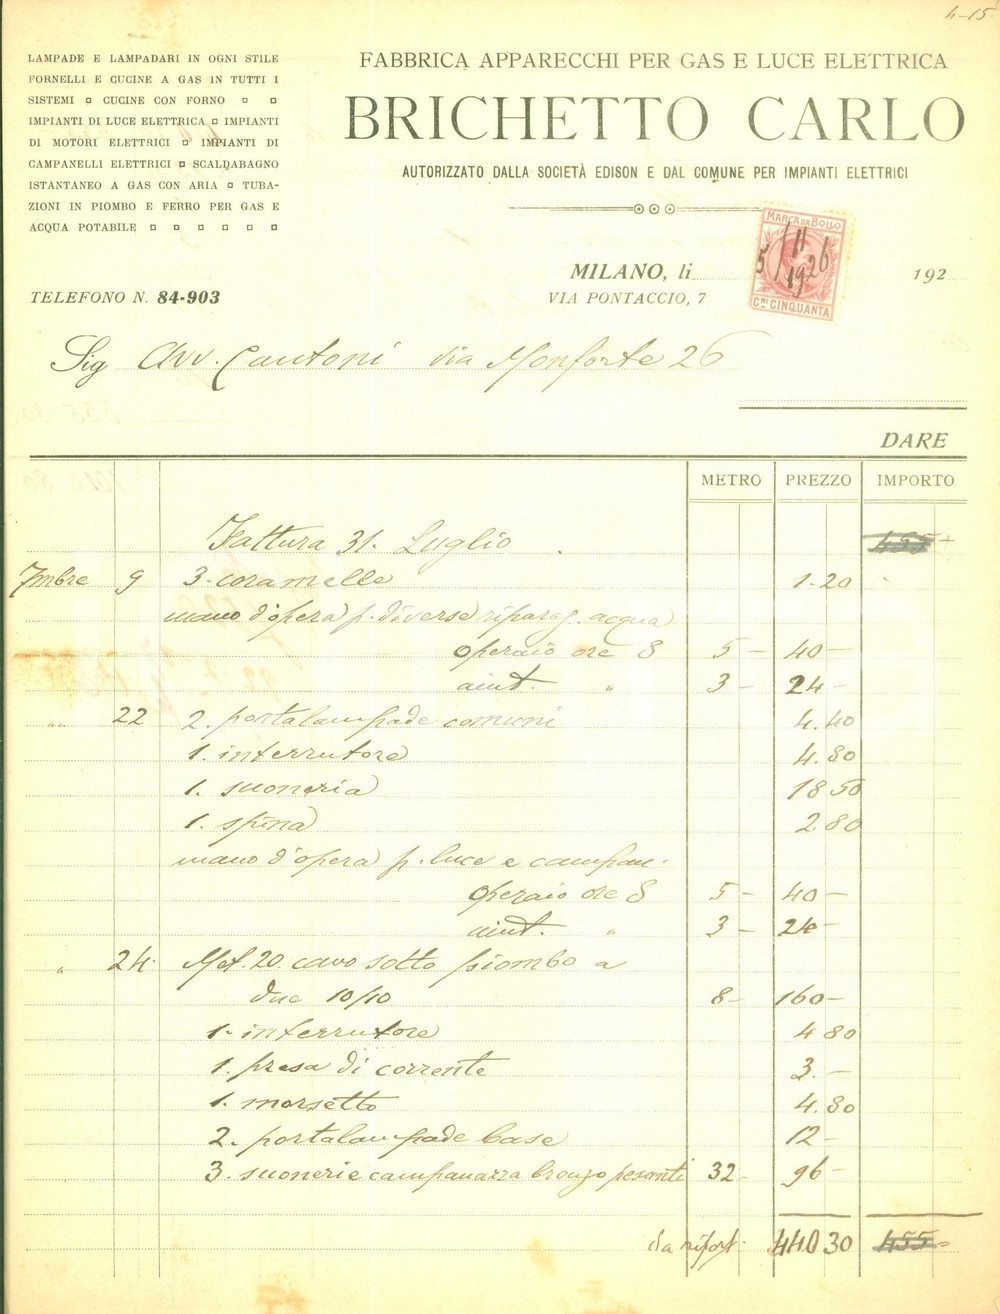 4-15
LAMPADE E LAMPADARI IN OGNI STILE
FORNELLI E CUCINE A GAS IN TUTTI I
SISTEMI ¤ CUCINE CON FORNO ¤ ¤
IMPIANTI DI LUCE ELETTRICA ¤ IMPIANTI
DI MOTORI ELETTRICI ¤ IMPIANTI DI
CAMPANELLI ELETTRICI ¤ SCALDABAGNO
ISTANTANEO A GAS CON ARIA ¤ TUBA-
ZIONI IN PIOMBO E FERRO PER GAS E
ACQUA POTABILE ¤ ¤ ¤ ¤ ¤ ¤
TELEFONO N. 84-903
FABBRICA APPARECCHI PER GAS E LUCE ELETTRICA
BRICHETTO CARLO
AUTORIZZATO DALLA SOCIETÀ EDISON E DAL COMUNE PER IMPIANTI ELETTRICI
MARCA DA BOLLO
5/11
1926
CMI CINQUANTA
MILANO, li 192
VIA PONTACCIO, 7
Sig Avv. Cantoni via Monforte 26
DARE
METRO PREZZO IMPORTO
Fattura 31. Luglio 455
7mbre 9 3. caramelle 1.20
mano d'opera p. diverse riparaz. acqua
operaio ore 8 5 - 40 -
aiut. " 3 - 24 -
" 22 2. portalampade comuni 4.40
1. interrutore 4.80
1. suoneria 18 50
1. spina 2.80
mano d'opera p. luce e campan.
operaio ore 8 5 - 40 -
aiut. " 3 - 24 -
" 24. Met. 20. cavo sotto piombo a
due 10/10 8 - 160 -
1. interrutore 4 80
1. presa di corrente 3. -
1. morsetto 4.80
2. portalampade base 12 -
3. suonerie campanazza bronzo pesanti 32 - 96 -
da riport. 440 30 455 -